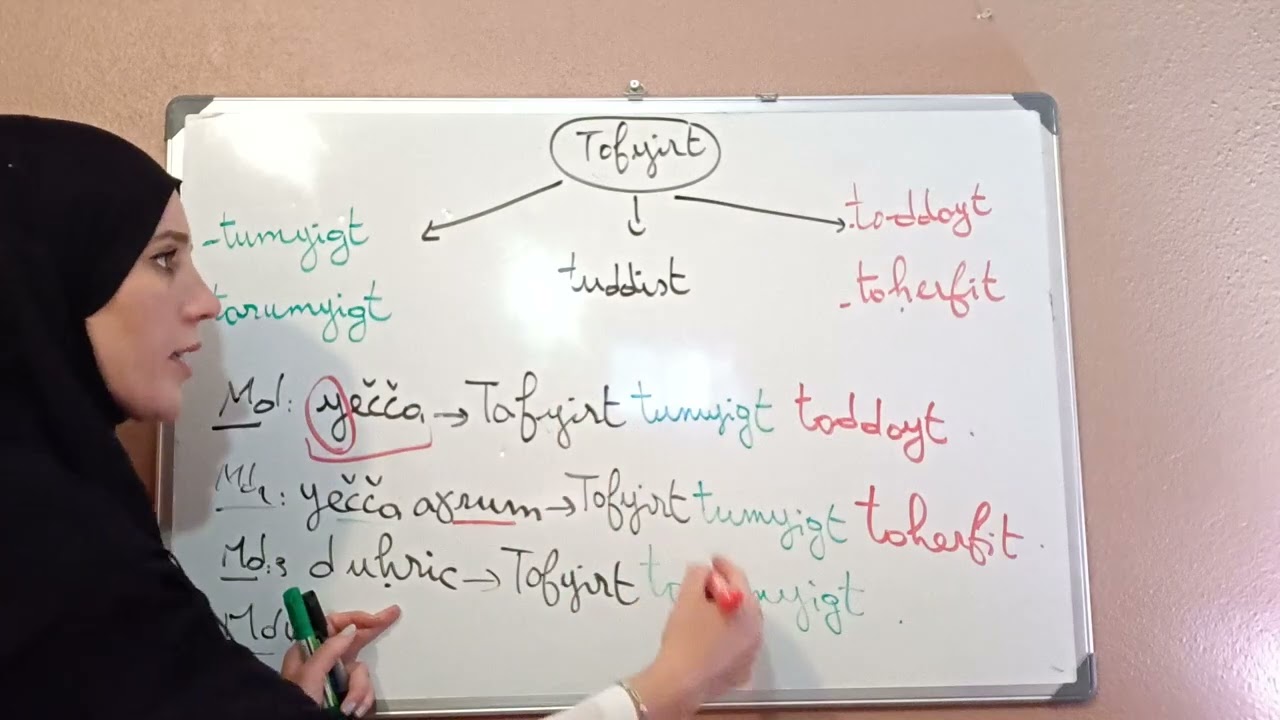 Tafyirt
-tumyigt
tarumyigt
tuddist
-taddayt
-taḥerfit
Md: yečča → Tafyirt tumyigt taddayt.
Md2: yečča aɣrum → Tafyirt tumyigt taḥerfit.
Md:3 d uḥric → Tafyirt